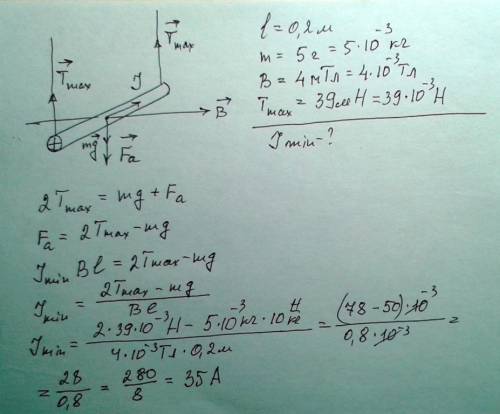 T⃗max
T⃗max
I
B⃗
mg⃗
F⃗a
l = 0,2 м
m = 5 г = 5·10⁻³ кг
B = 4 мТл = 4·10⁻³ Тл
Tmax = 39 мН = 39·10⁻³ Н
Imin - ?
2Tmax = mg + Fa
Fa = 2Tmax - mg
Imin Bl = 2Tmax - mg
Imin = (2Tmax - mg) / Bl
Imin = (2·39·10⁻³ Н - 5·10⁻³ кг·10 Н/кг) / (4·10⁻³ Тл·0,2 м) = ((78-50)·10⁻³) / (0,8·10⁻³) =
= 28/0,8 = 280/8 = 35 А